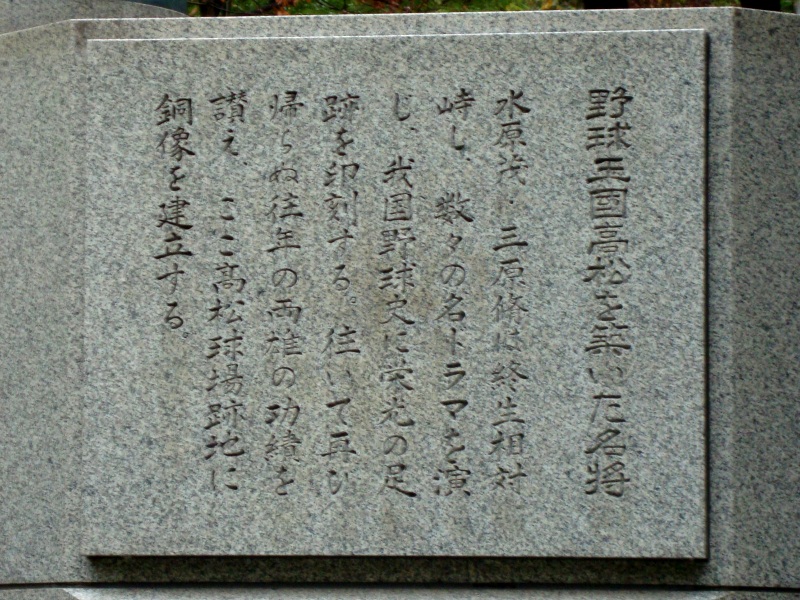 野球王国高松を築いた名将
水原茂・三原脩は終生相対
峙し、数々の名ドラマを演
じ、我国野球史に栄光の足
跡を印刻する。往いて再び
帰らぬ往年の両雄の功績を
讃え、ここ高松球場跡地に
銅像を建立する。